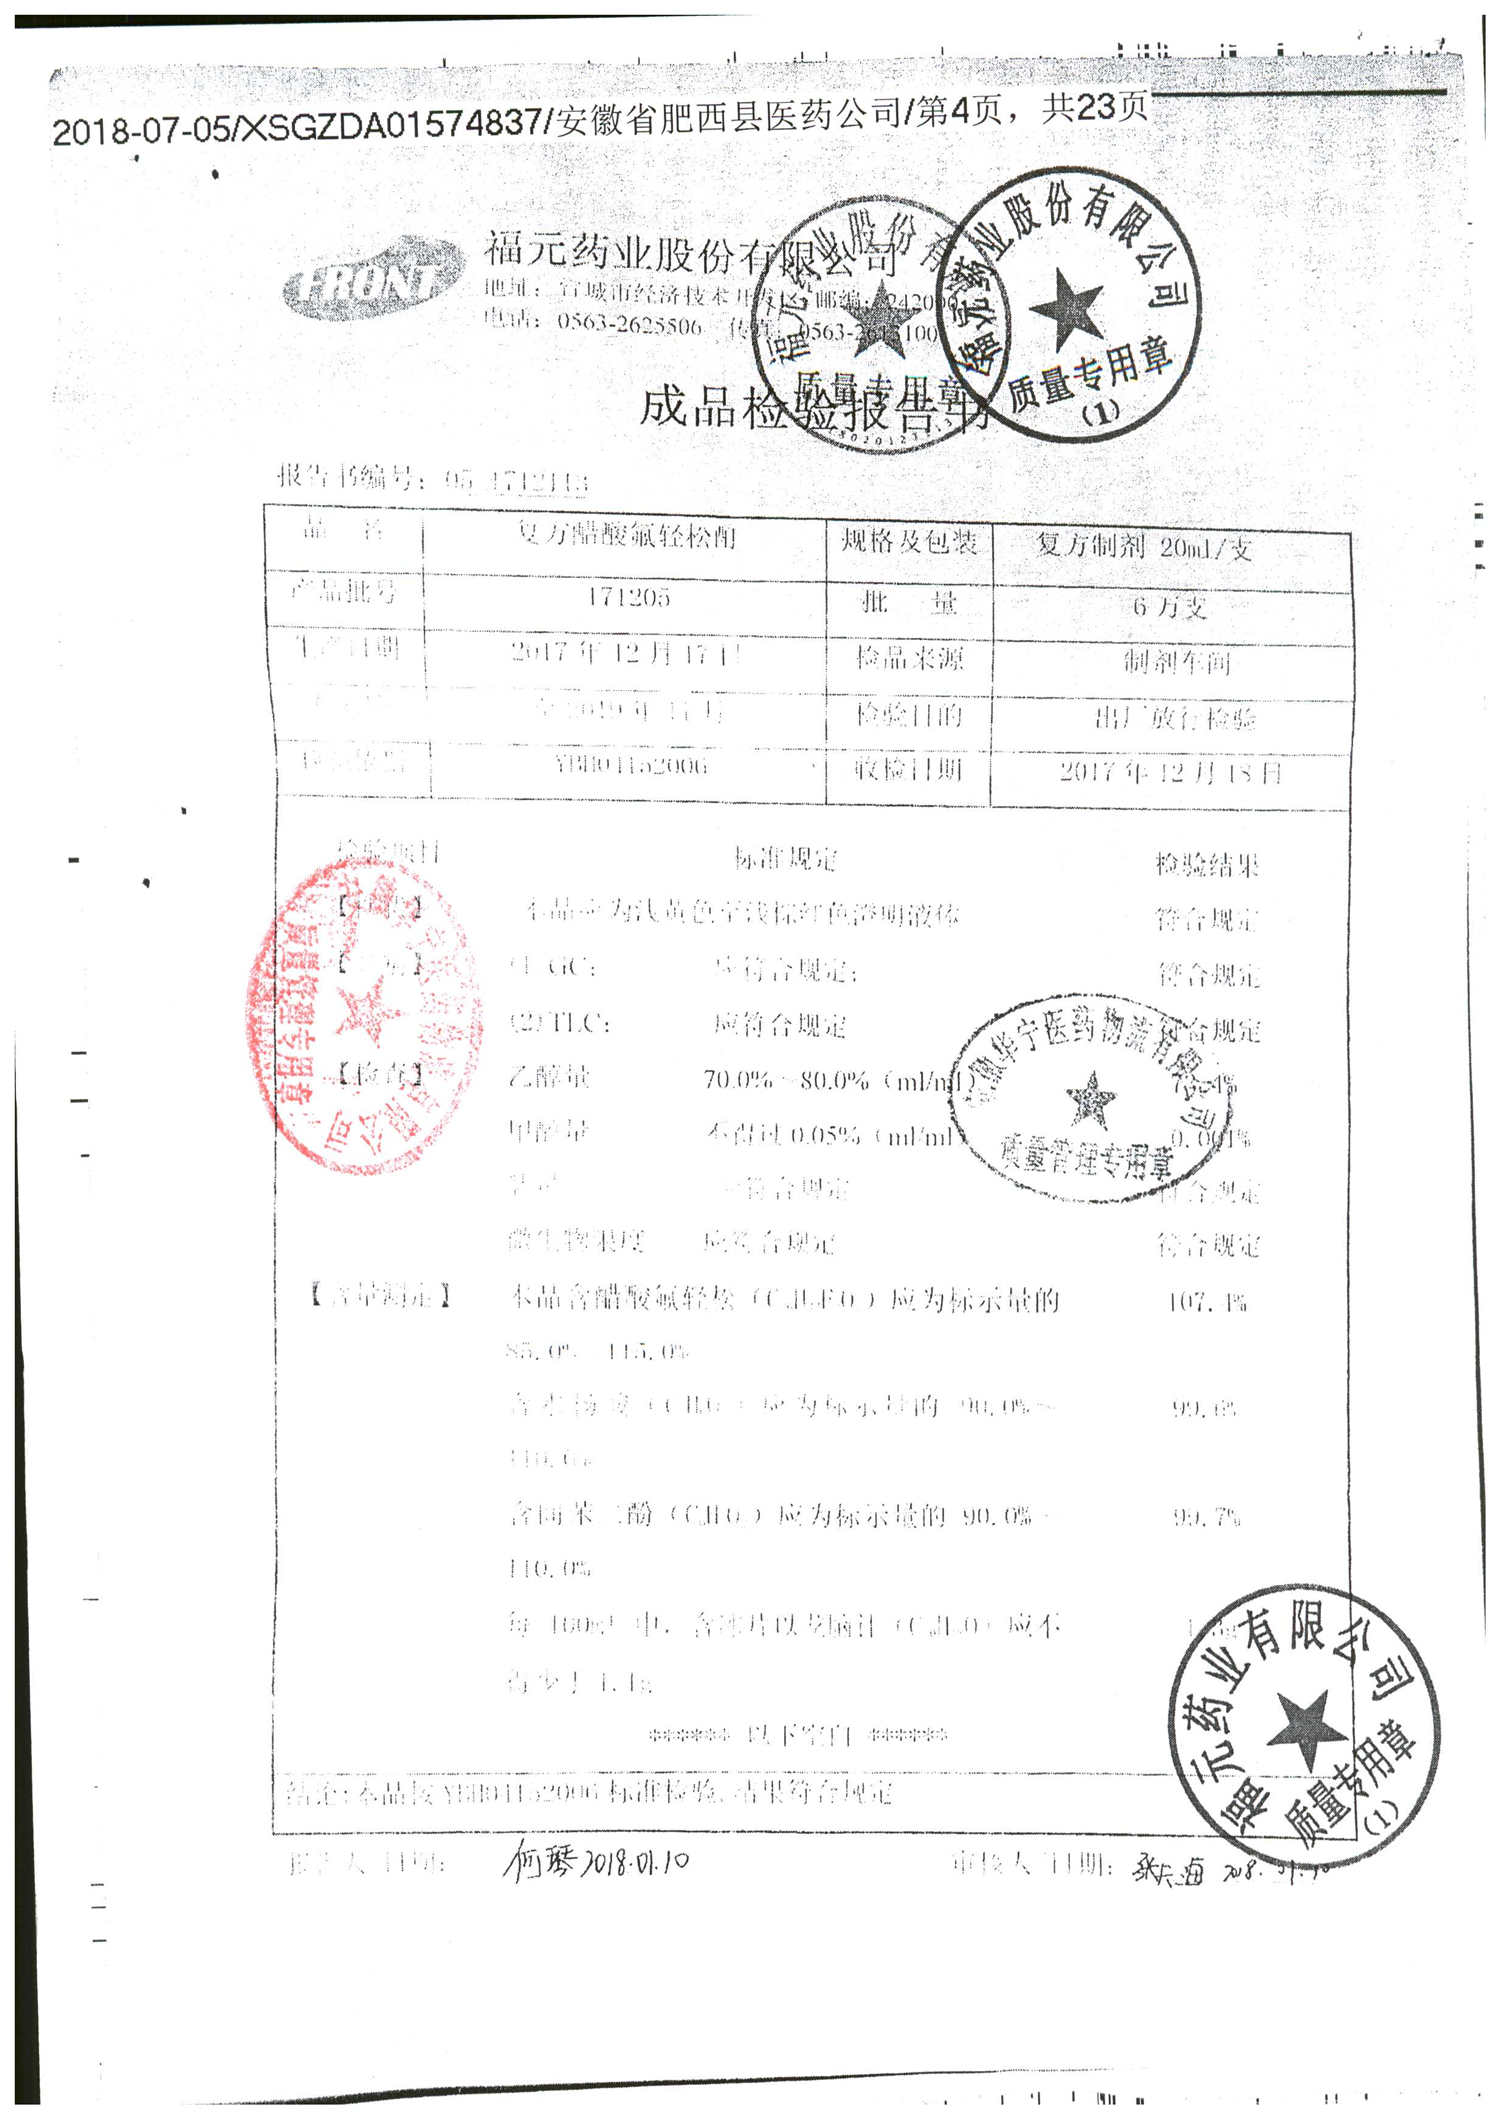 2018-07-05/XSGZDA01574837/安徽省肥西县医药公司/第4页，共23页
FRONT
福元药业股份有限公司
地址：宣城市经济技术开发区 邮编：242000
电话：0563-2625506 传真：0563-2615100
成品检验报告书
报告书编号：05-1712113
品 名 复方醋酸氟轻松酊 规格及包装 复方制剂 20ml/支
产品批号 171205 批 量 6万支
生产日期 2017年12月17日 检品来源 制剂车间
至2019年11月 检验目的 出厂放行检验
YBH01152006 收检日期 2017年12月18日
检验项目 标准规定 检验结果
【性状】 本品应为浅黄色至浅棕红色澄明液体 符合规定
(1)GC： 应符合规定； 符合规定
(2)TLC： 应符合规定 符合规定
【检查】 乙醇量 70.0%~80.0%（ml/ml）
甲醇量 不得过0.05%（ml/ml） 0.001%
应符合规定 符合规定
微生物限度 应符合规定 符合规定
【含量测定】 本品含醋酸氟轻松 应为标示量的 107.1%
85.0%~115.0%
含水杨酸 应为标示量的 90.0%~ 99.6%
110.0%
含间苯二酚 应为标示量的 90.0%~ 99.7%
110.0%
每100ml中，含冰片以龙脑计 应不
得少于1.1g
****** 以下空白 ******
结论：本品按YBH01152006标准检验，结果符合规定
报告人/日期： 何琴 2018.01.10 审核人/日期： 2018.01.10
福元药业股份有限公司
质量专用章
福元药业股份有限公司
质量专用章
(1)
质量管理专用章
有限公司
安徽华宁医药物流有限公司
质量管理专用章
福元药业有限公司
质量专用章
(1)